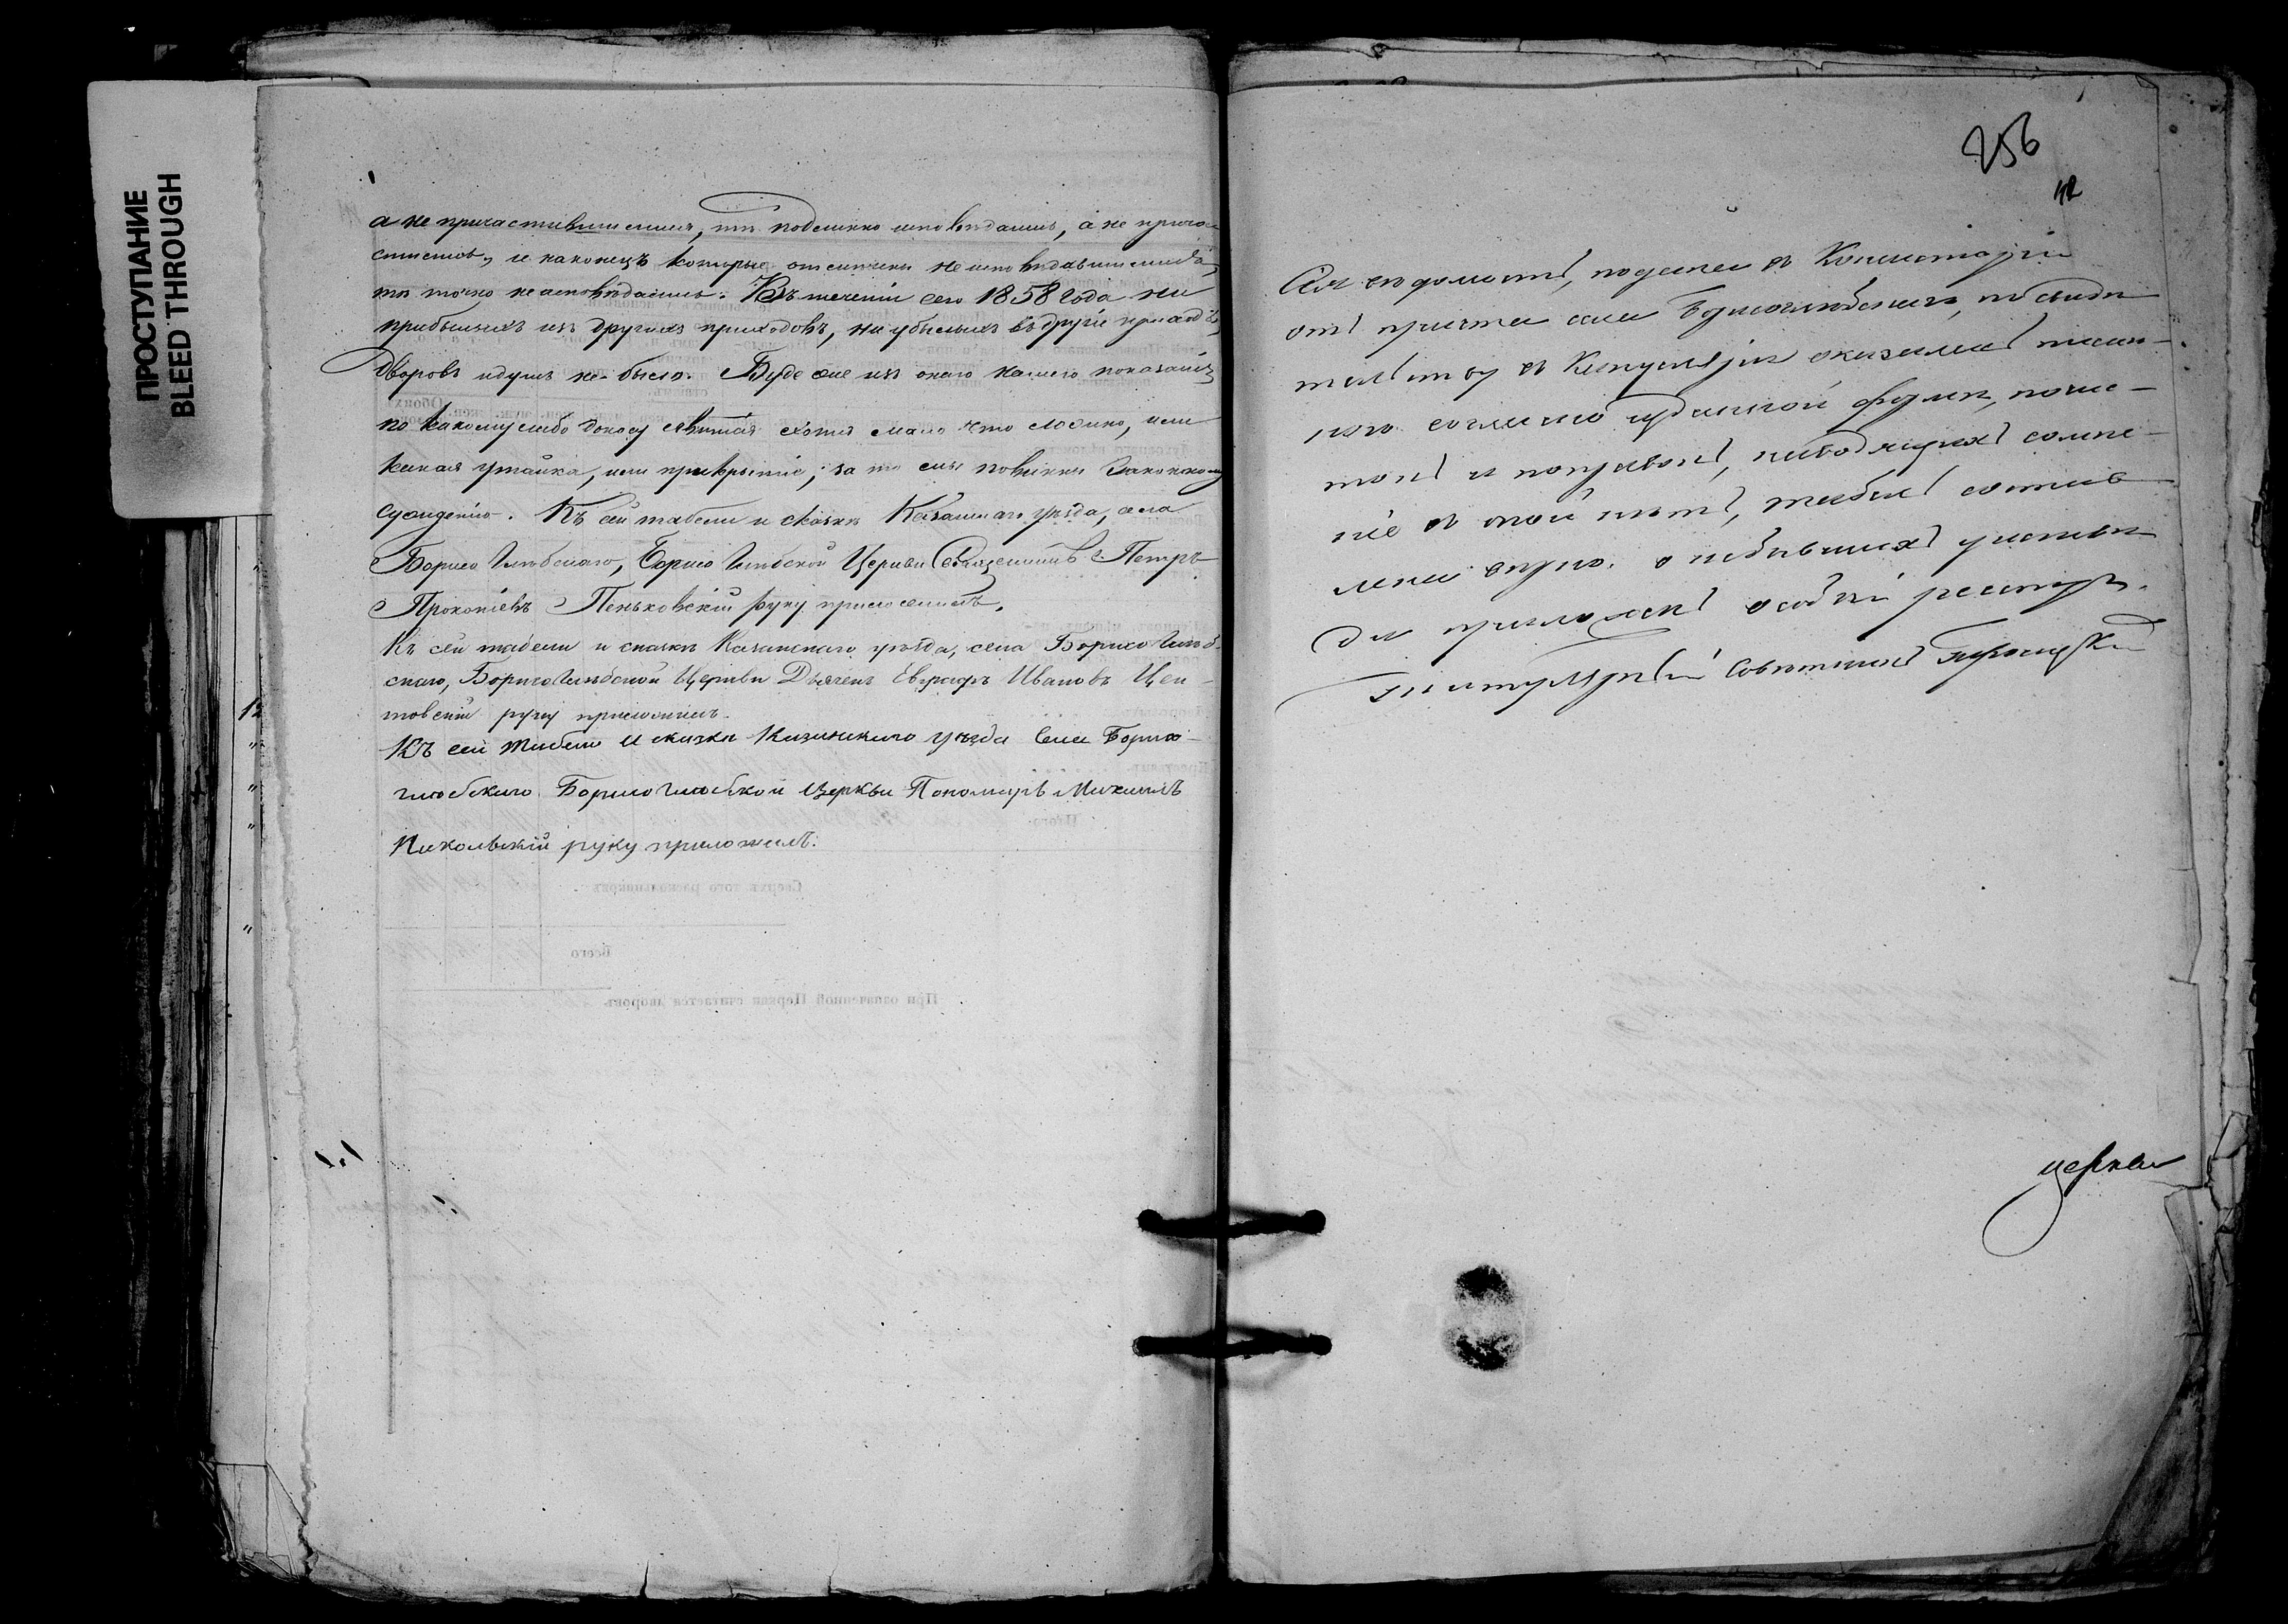 ПРОСТУПАНИЕ
BLEED THROUGH
а не причастившимися, тѣ подлинно исповѣдались, а не прича-
стились, и наконецъ которые отмѣчены не исповѣдавшимися,
тѣ точно не исповѣдались. Въ теченіи сего 1858 года ни
прибылыхъ изъ другихъ приходовъ, ни убылыхъ въ другіе приходы
дворовъ и душъ не было. Буде же изъ онаго нашего показанія
по какому либо доносу явится хотя мало что ложно, или
какая утайка, или прикрытіе; за то мы повинны законному
сужденію. Къ сей табели и сказкѣ Казанскаго уѣзда, села
Борисо Глѣбскаго, Борисо Глѣбской Церкви Священникъ Петръ
Прокопіевъ Пеньковскій руку приложилъ.
Къ сей табели и сказкѣ Казанскаго уѣзда, села Борисо Глѣб-
скаго, Борисо Глѣбской Церкви Дьячекъ Евграфъ Ивановъ
руку приложилъ.
Къ сей табели и сказки Казанскаго уѣзда Села Борисо-
глебскаго Борисоглебской Церкви Пономарь Михаилъ
Никольскій руку приложилъ.
12
Сверхъ того раскольниковъ
Всего
При означенной Церкви считается дворовъ
256
Сія вѣдомость, поданная въ Консисторію
отъ причта села Борисоглѣбскаго, по свидѣ-
тельству въ Канцеляріи оказалась писан-
ною согласно изданной формѣ, почис-
токъ и поправокъ, наводящихъ сомнѣ-
ніе въ оной нѣтъ, табель составлена
вѣрно. о небывшихъ у исповѣ-
ди приложенъ особый реестръ.
Титулярный Совѣтникъ
церкви